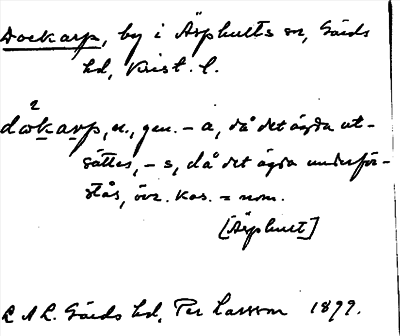 Dockarp, by i Äsphults sn, Gärds
hd, Krist. l.
2
dȯkarp, n., gen. - a, då det ägda ut-
sättes, - s, då det ägda underför-
stås, övr. kas. = nom.
[Äsphult]
L A L. Gärds hd, Per Larsson 1899.